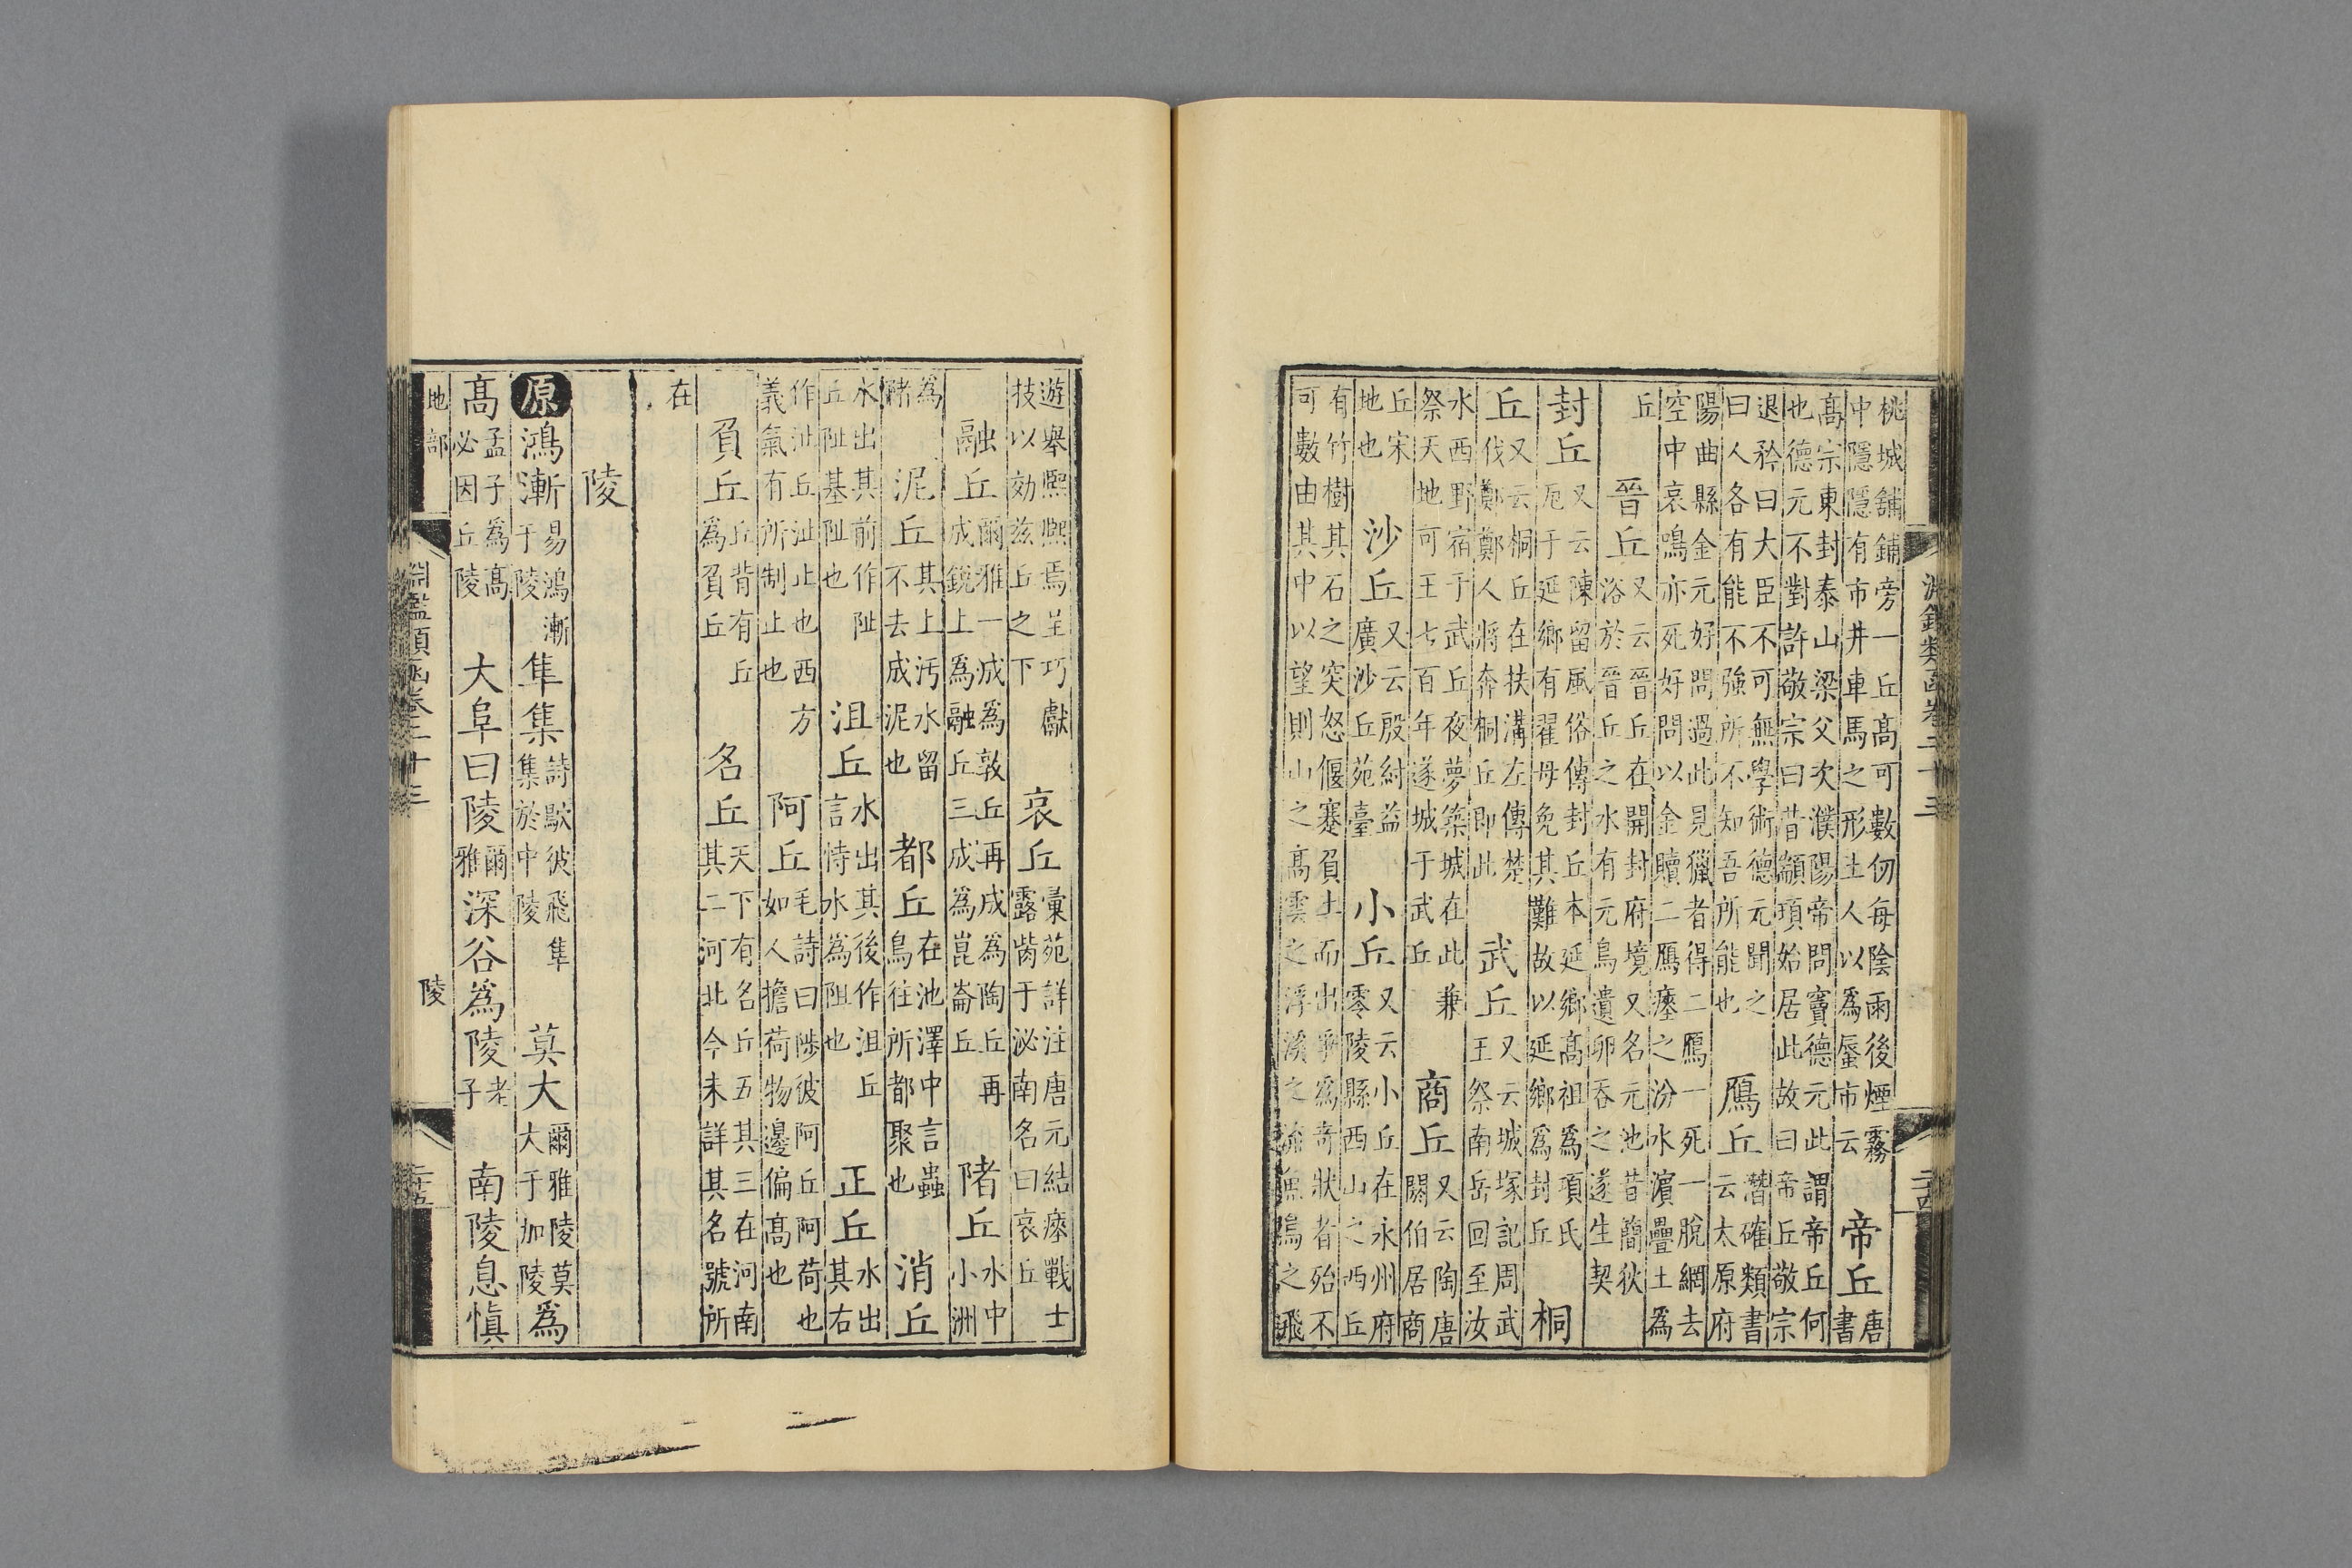 淵鑑類函卷二十三 二十四
桃城舖鋪旁一丘高可數仞每陰雨後煙霧
中隱隱有市井車馬之形土人以為蜃市云
帝丘
唐
書
高宗東封泰山梁父次濮陽帝問竇德元此謂帝丘何
也德元不對許敬宗曰昔顓頊始居此故曰帝丘敬宗
退矜曰大臣不可無學術德元聞之
曰人各有能不強所不知吾所能也
鴈丘
潛確類書
云太原府
陽曲縣金元好問過此見獵者得二鴈一死一脫網去
空中哀鳴亦死好問以金贖二鴈瘞之汾水濵疊土為
丘
晉丘
又云晉丘在開封府境又名元池昔簡狄
浴於晉丘之水有元鳥遺卵吞之遂生契
封丘
又云陳留風俗傳封丘本延鄉高祖為項氏
厄于延鄉有翟母免其難故以延鄉為封丘
桐
丘
又云桐丘在扶溝左傳楚
伐鄭鄭人將奔桐丘即此
武丘
又云城塚記周武
王祭南岳回至汝
水西野宿于武丘夜夢築城在此兼
祭天地可王七百年遂城于武丘
商丘
又云陶唐
閼伯居商
丘宋
地也
沙丘
又云殷紂益
廣沙丘苑臺
小丘
又云小丘在永州府
零陵縣西山之西丘
有竹樹其石之突怒偃蹇負土而出爭為奇狀者殆不
可數由其中以望則山之高雲之浮溪之流魚鳥之飛
遊舉熙熙焉呈巧獻
技以効茲丘之下
哀丘
彙苑詳注唐元結瘞戰士
露胔于泌南名曰哀丘
融丘
爾雅一成為敦丘再成為陶丘再
成銳上為融丘三成為崑崙丘
陼丘
水中
小洲
為
陼
泥丘
其上汚水留
不去成泥也
都丘
在池澤中言蟲
鳥往所都聚也
消丘
水出其前作阯
丘阯基阯也
沮丘
水出其後作沮丘
言恃水為阻也
正丘
水出
其右
作沚丘沚止也西方
義氣有所制止也
阿丘
毛詩曰陟彼阿丘阿荷也
如人擔荷物邊偏高也
負丘
丘背有丘
為負丘
名丘
天下有名丘五其三在河南
其二河北今未詳其名號所
在
陵
原 鴻漸
易鴻漸
于陵
隼集
詩鴥彼飛隼
集於中陵
莫大
爾雅陵莫
大于加陵
為
高
孟子為高
必因丘陵
大阜曰陵
爾
雅
深谷為陵
老
子
南陵息慎
地部 淵鑑類函卷二十三 陵 二十五